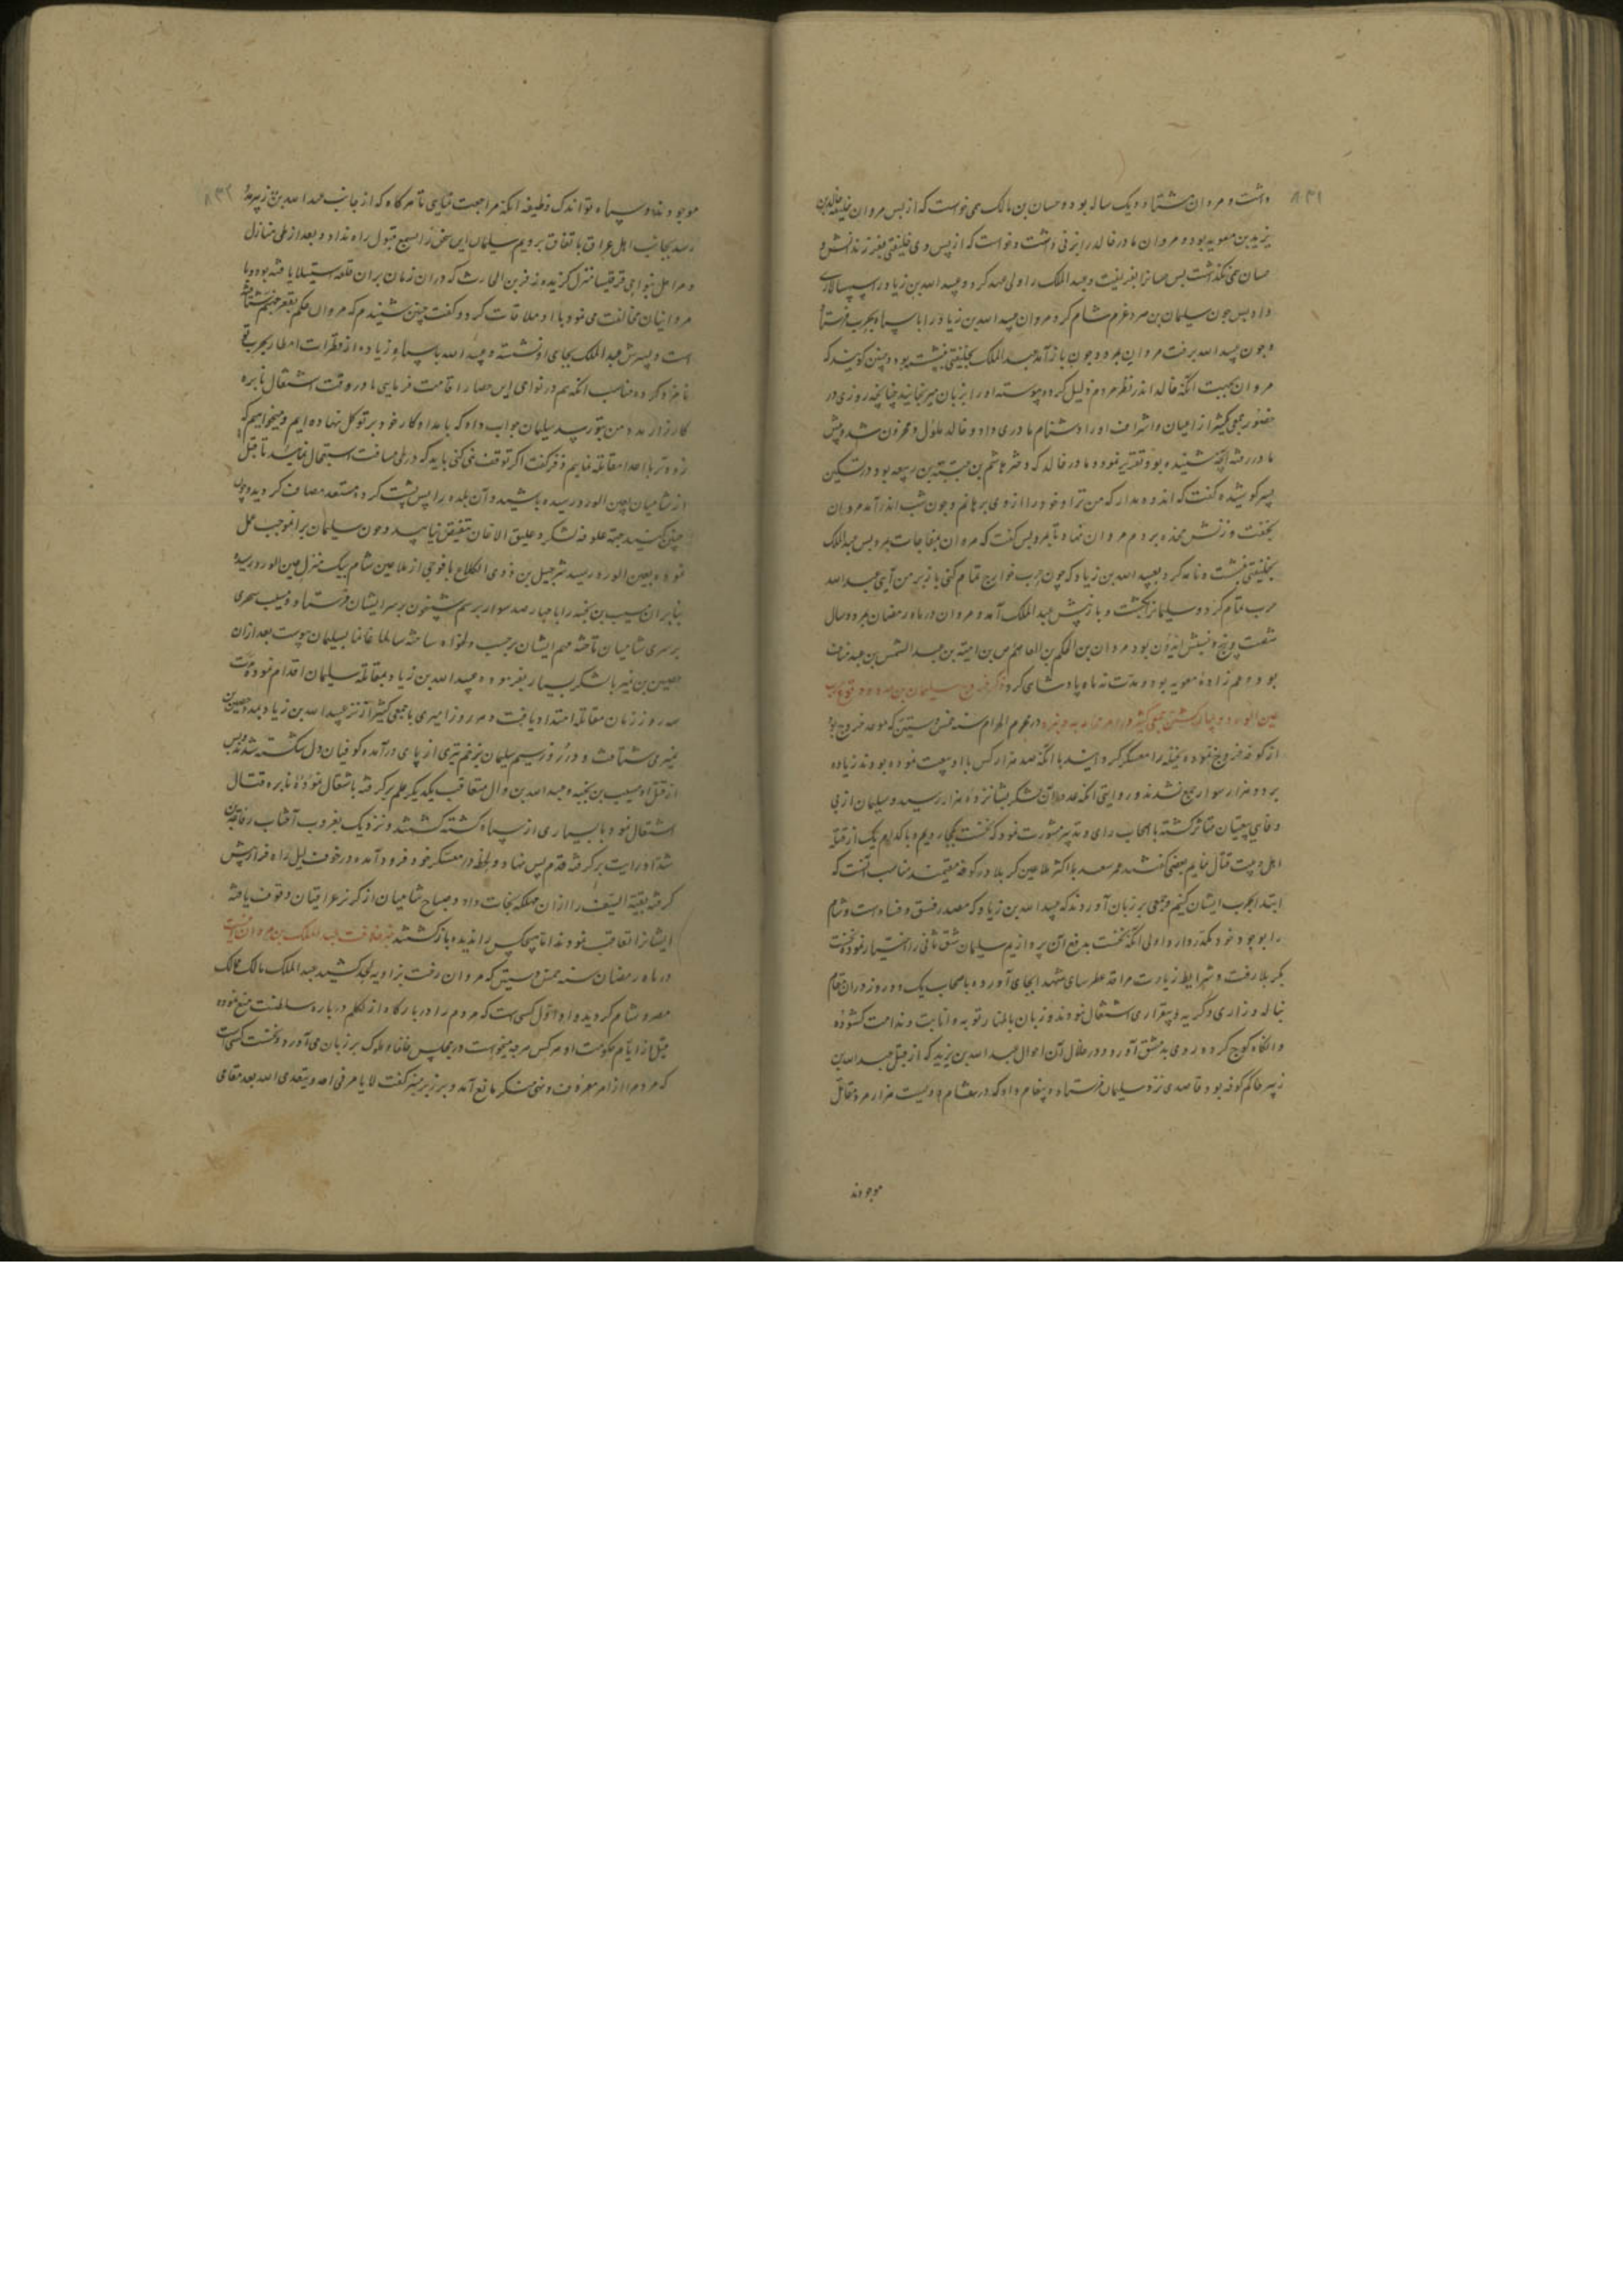 ۸۳۱
داشت و مروان هشتاد و یک ساله بود و حسان بن مالک می خواست که از پس مروان خلیفه خالد بن
یزید بن معویه بود و مروان مادر خالد را بزنی داشت و خواست که از پس وی خلیفتی بفرزندانش و
حسان نمی گذاشت پس حسانرا بفریفت و عبد الملک را ولی عهد کرد و عبید الله بن زیاد را سپهسالاری
داد پس چون سلیمان بن صرد عزم شام کرد مروان عبید الله بن زیاد را با سپاه بحرب فرستاد
و چون عبید الله برفت مروان بمرد و چون باز آمد عبد الملک بخلیفتی بنشسته بود و چنین گویند که
مروان بجهت آنکه خالد اندر نظر مردم ذلیل گردد پیوسته او را بزبان میرنجانید چنانچه روزی در
حضور جمعی کثیر از اعیان و اشراف او را دشنام مادری داد و خالد ملول و محزون شد و پیش
مادر رفته آنچه شنیده بود تقریر نمود و مادر خالد که دختر هاشم بن عتبه بن ربیعه بود در تسکین
پسر کوشیده گفت که اندوه مدار که من ترا و خود را از وی برهانم و چون شب اندر آمد مروان
بخفت و زنش مخده بر دم مروان نهاد تا بمرد پس گفت که مروان بمفاجات بمرد پس عبد الملک
بخلیفتی بنشست و نامه کرد بعبید الله بن زیاد که چون حرب خوارج تمام کنی باز بر من آیی عبید الله
حرب تمام کرد و سلیمانرا بکشت و باز پیش عبد الملک آمد و مروان در ماه رمضان بمرد و سال
شصت و پنج و نسبش ایدون بود مروان بن الحکم بن العاص بن امیه بن عبد الشمس بن عبد مناف
بود و عم زاده معویه بود و مدت نه ماه پادشاهی کرد ذکر خروج سلیمان بن صرد و وقوع حرب
عین الورد و بیان کشتن جمعی کثیر در محرم الحرام سنه خمس و ستین که موعد خروج بود
از کوفه خروج نموده نخیله را معسکر گردانید با آنکه صد هزار کس با او بیعت نموده بودند زیاده
بر ده هزار سوار جمع نشدند و روایتی آنکه عدد آن لشکر بشانزده هزار رسید و سلیمان از بی
وفایی بیعتیان متاثر گشته با اصحاب رای و تدبیر مشورت نمود که نخست بکجا رویم و با کدام یک از قتله
اهل بیت قتال نمایم بعضی گفتند عمر سعد با اکثر ملاعین کربلا در کوفه مقیمند مناسب آنست که
ابتدا بحرب ایشان کنیم و جمعی بر زبان آوردند که عبید الله بن زیاد که مصدر فسق و فساد است و شام
را بوجود خود مکدر دارد اولی آنکه نخست بدفع آن پردازیم سلیمان شق ثانی را اختیار نموده نخست
بکربلا رفت و شرایط زیارت مراقد عطرسای شهدا بجای آورده با اصحاب یک دو روز در آن مقام
بناله و زاری و گریه و بیقراری اشتغال نمودند و زبان باظهار توبه و انابت و ندامت کشوده
و آنگاه کوچ کرده روی بدمشق آورد و در خلال آن احوال عبد الله بن یزید که از قبل عبد الله بن
زبیر حاکم کوفه بود قاصدی نزد سلیمان فرستاد و پیغام داد که در شام دویست هزار مرد مقاتل
موجودند
۸۳۲
موجودند و سپاه تو اندک وظیفه آنکه مراجعت نمایی تا هرگاه که از جانب عبد الله بن زبیر مدد
رسد بجانب اهل عراق باتفاق برویم سلیمان این سخن را بسمع قبول راه نداد و بعد از طی منازل
و مراحل بنواحی قرقیسا منزل گزیده زفر بن الحارث که در آن زمان بران قلعه استیلا یافته بود و با
مروانیان مخالفت می نمود با او ملاقات کرد و گفت چنین شنیدم که مروان حکم بقعر جهنم شتافته
است و پسرش عبد الملک بجای او نشسته و عبید الله با سپاه زیاده از قطرات امطار بحرب تو
نامزد کرده مناسب آنکه هم در نواحی این حصار اقامت فرمایی تا در وقت اشتغال نایره
کارزار مدد من بتو رسد سلیمان جواب داد که ما بمدد او کار خود بر توکل نهاده ایم و میخواهیم که
زودتر با اعدا مقاتله نماییم زفر گفت اگر توقف نمی کنی باید که در طی مسافت استعجال نمایید تا قبل
از شامیان بعین الورد رسیده باشید و آن بلده را پس پشت کرده مستعد مصاف گردید و چون
چنین کنید جهة علوفه لشکر و علیق الاغان تنقیق نیابید و چون سلیمان برانموجب عمل
نموده بعین الورد رسید شرحبیل بن ذوی الکلاع با فوجی از ملاعین شام بیک منزل عین الورد رسید
بنابران مسیب بن نجبه را با چهار صد سوار برسم شبخون بر سر ایشان فرستاد و مسیب سحری
بر سر شامیان تاخته مهم ایشان برحسب دلخواه ساخته سالما غانما بسلیمان پیوست بعد ازان
حصین بن نمیر با لشکر بسیار بفرموده عبید الله بن زیاد بمقاتله سلیمان اقدام نموده مدت
سه روز زمان مقاتله امتداد یافت و هر روز امیری با جمعی کثیر از نزد عبید الله بن زیاد بمدد حصین بن
نمیر می شتافت و در روز سیم سلیمان بزخم تیری از پای درآمده کوفیان دل شکسته شدند و پس
از قتل او مسیب بن نجبه و عبد الله بن وال متعاقب یکدیگر علم برگرفته باشعال نموده نایره قتال
اشتغال نمود با بسیاری از سپاه کشته گشتند و نزدیک بغروب آفتاب رفاعه بن
شداد رایت برگرفته قدم پس نهاد و لحظه در معسکر خود فرود آمده در جوف لیل راه فرار پیش
گرفته بقیة السیف را ازان مهلکه نجات داد و صباح شامیان از گریز عراقیان وقوف یافته
ایشانرا تعاقب نمودند اما هیچکس را ندیده باز گشتند ذکر خلافت عبد الملک بن مروان
در ماه رمضان سنه خمس و ستین که مروان رخت بزاویه لحد کشید عبد الملک مالک ممالک
مصر و شام گردیده و او اول کسی است که مردم را در بارگاه از تکلم درباره سلطنت منع نموده
قبل از ایام حکومت او هر کس هرچه میخواست در مجلس خلفا و ملوک بر زبان می آورد و نخست کسی است
که مردم را از امر معروف و نهی منکر مانع آمد و بر زبر منبر گفت لا یامرنی احد بتقوی الله بعد مقامی